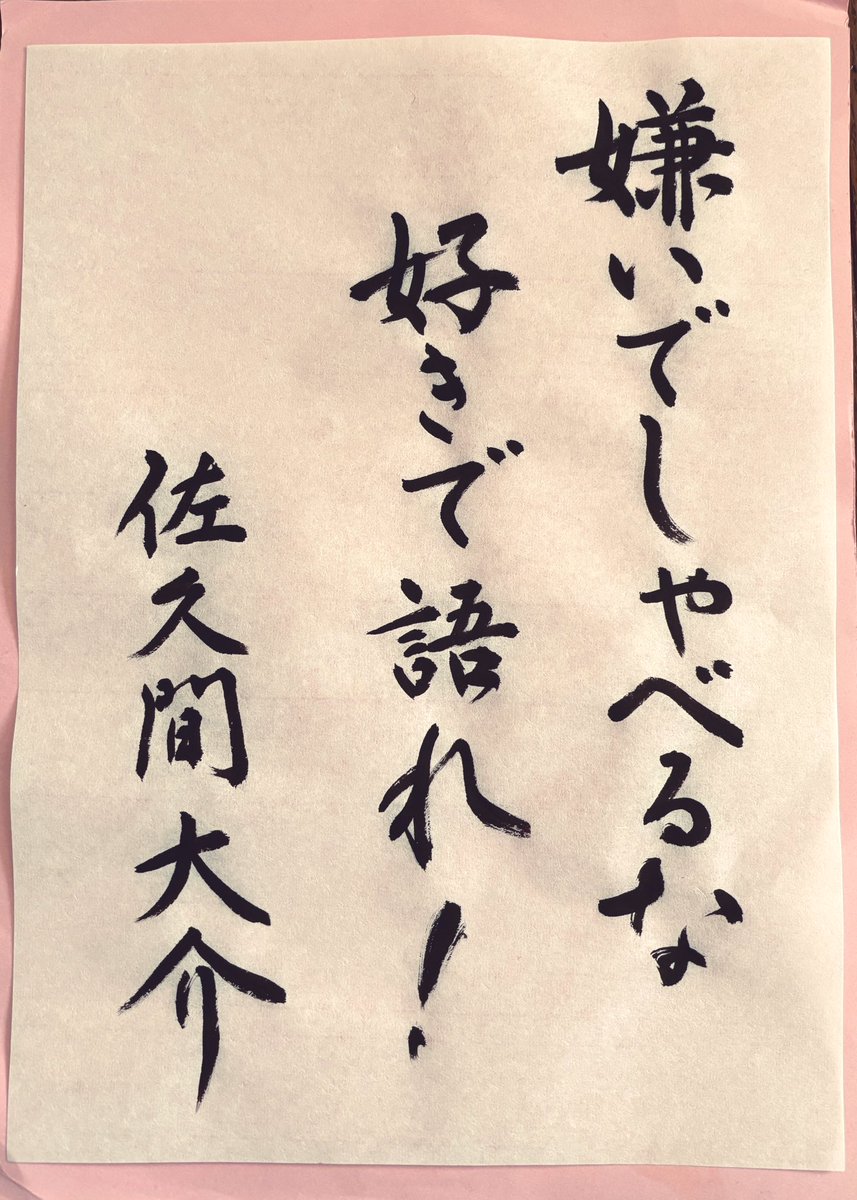 嫌いでしゃべるな
好きで語れ!
佐久間大介